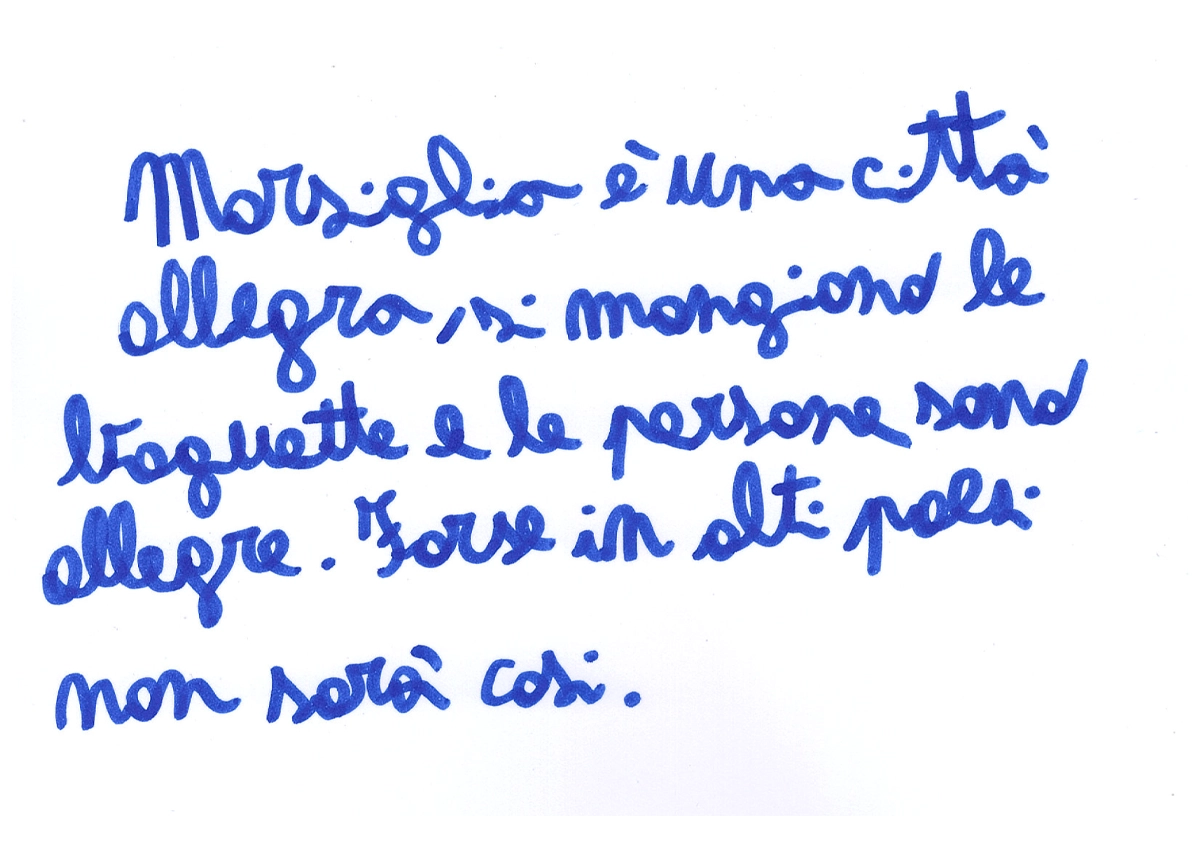 Marsiglia è una città
allegra, si mangiano le
baguette e le persone sono
allegre. Forse in alti paesi
non sarà così.